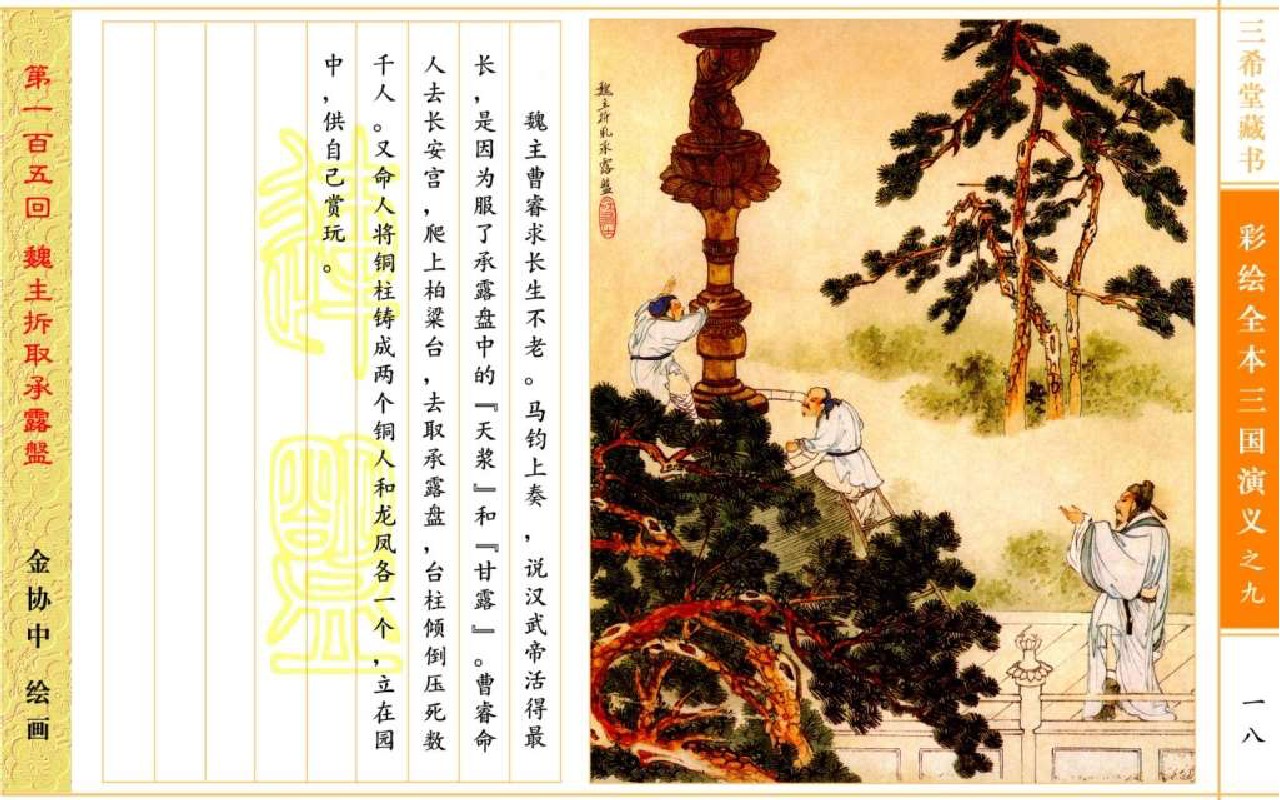 三希堂藏书
彩绘全本三国演义之九
一八
魏主拆取承露盘
魏主曹睿求长生不老。马钧上奏，说汉武帝活得最
长，是因为服了承露盘中的『天浆』和『甘露』。曹睿命
人去长安宫，爬上柏梁台，去取承露盘，台柱倾倒压死数
千人。又命人将铜柱铸成两个铜人和龙凤各一个，立在园
中，供自己赏玩。
第一百五回 魏主拆取承露盘
金协中 绘画